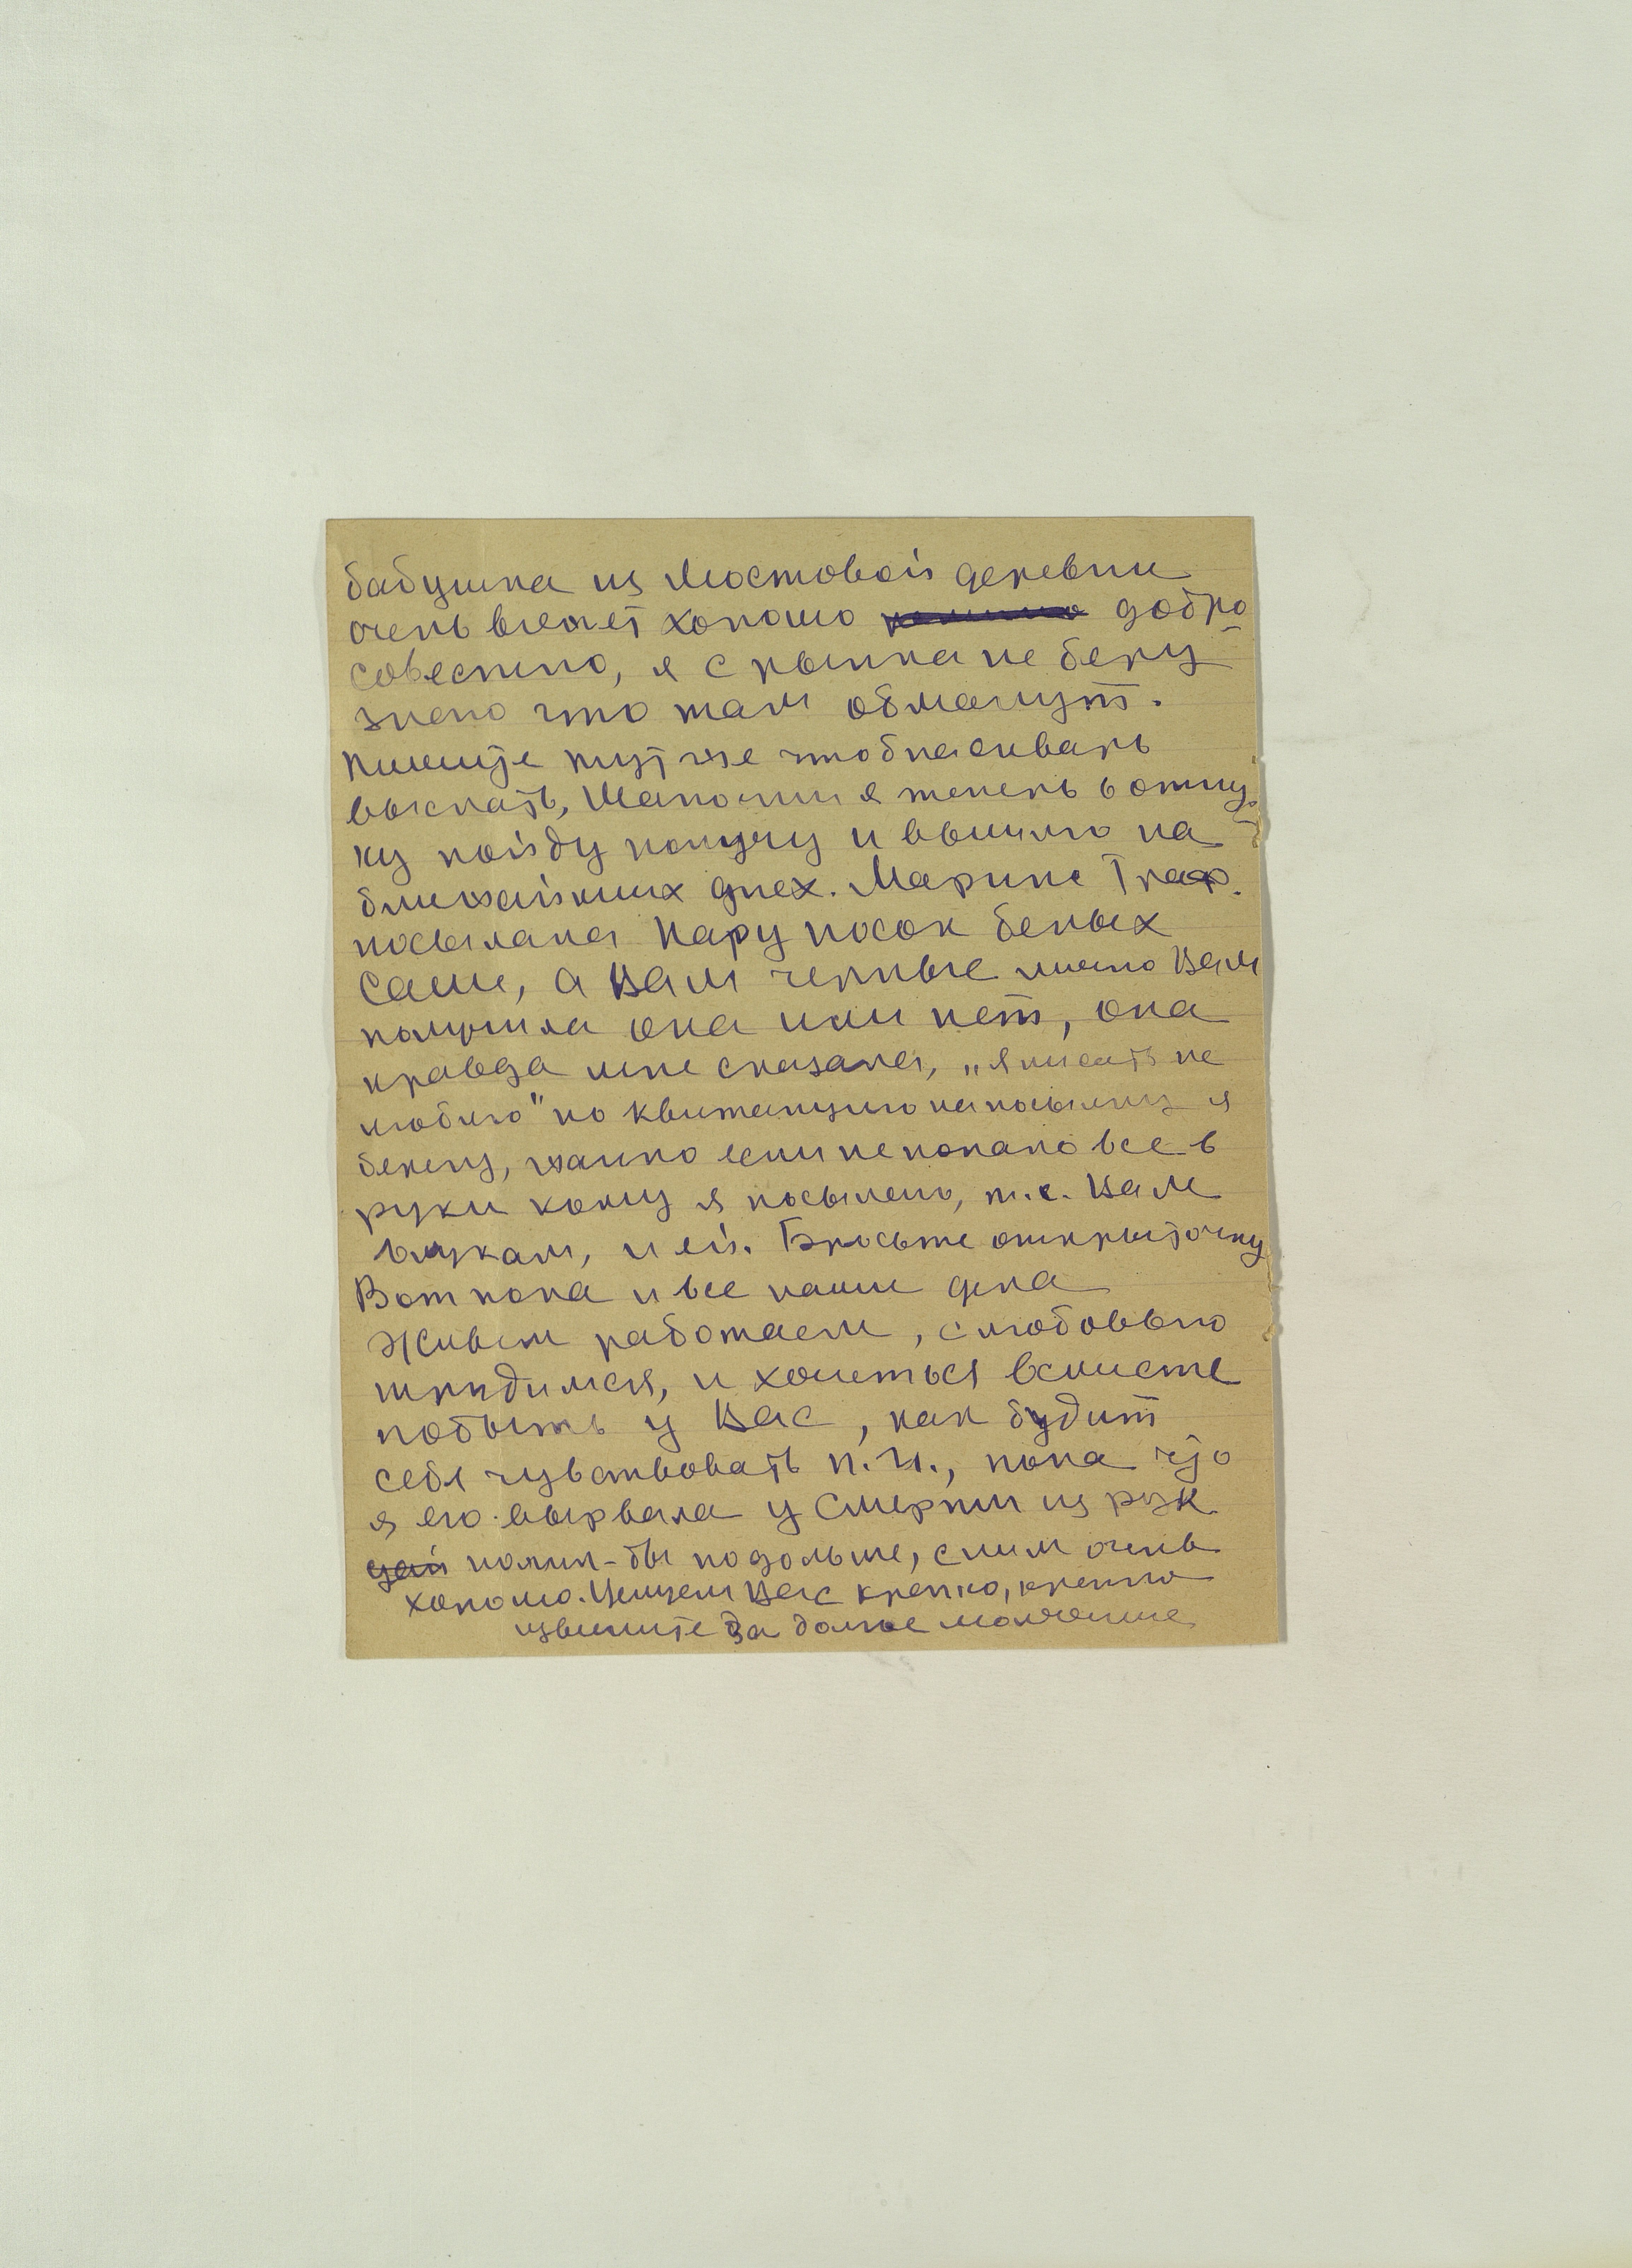 бабушка из Мостовой деревни
очень вяжет хорошо добро
совестно, я с рынка не беру
знаю что там обманут.
Пишите тут же чтобы связать
выслать, я теперь в отпус
ку пойду получу и вышлю на
ближайших днех. Марине Граф.
посылала пару носок белых
Саше, а Вам черные лично Вам
получила она или нет, она
правда мне сказала, „я писать не
люблю" но квитанцию на посылку я
берегу, жалко если не попало все в
руки кому я посылаю, т.е. Вам
внукам, и ей. Бросьте открыточку
Вот пока и все наши дела
Живем работаем, с любовью
трудимся, и хочеться вместе
побыть у Вас, как будит
себя чувствовать П.И., пока что
я его вырвала у Смерти из рук
пожил-бы подольше, с ним очень
хорошо. Целуем Вас крепко, крепко
извините за долгое молчание